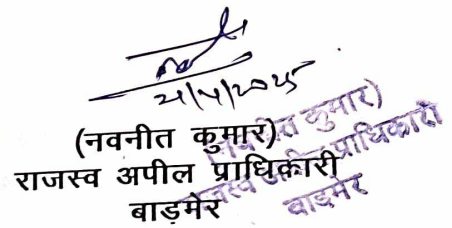 21/4/2025
(नवनीत कुमार)
राजस्व अपील प्राधिकारी
बाड़मेर
(नवनीत कुमार)
राजस्व अपील प्राधिकारी
बाड़मेर